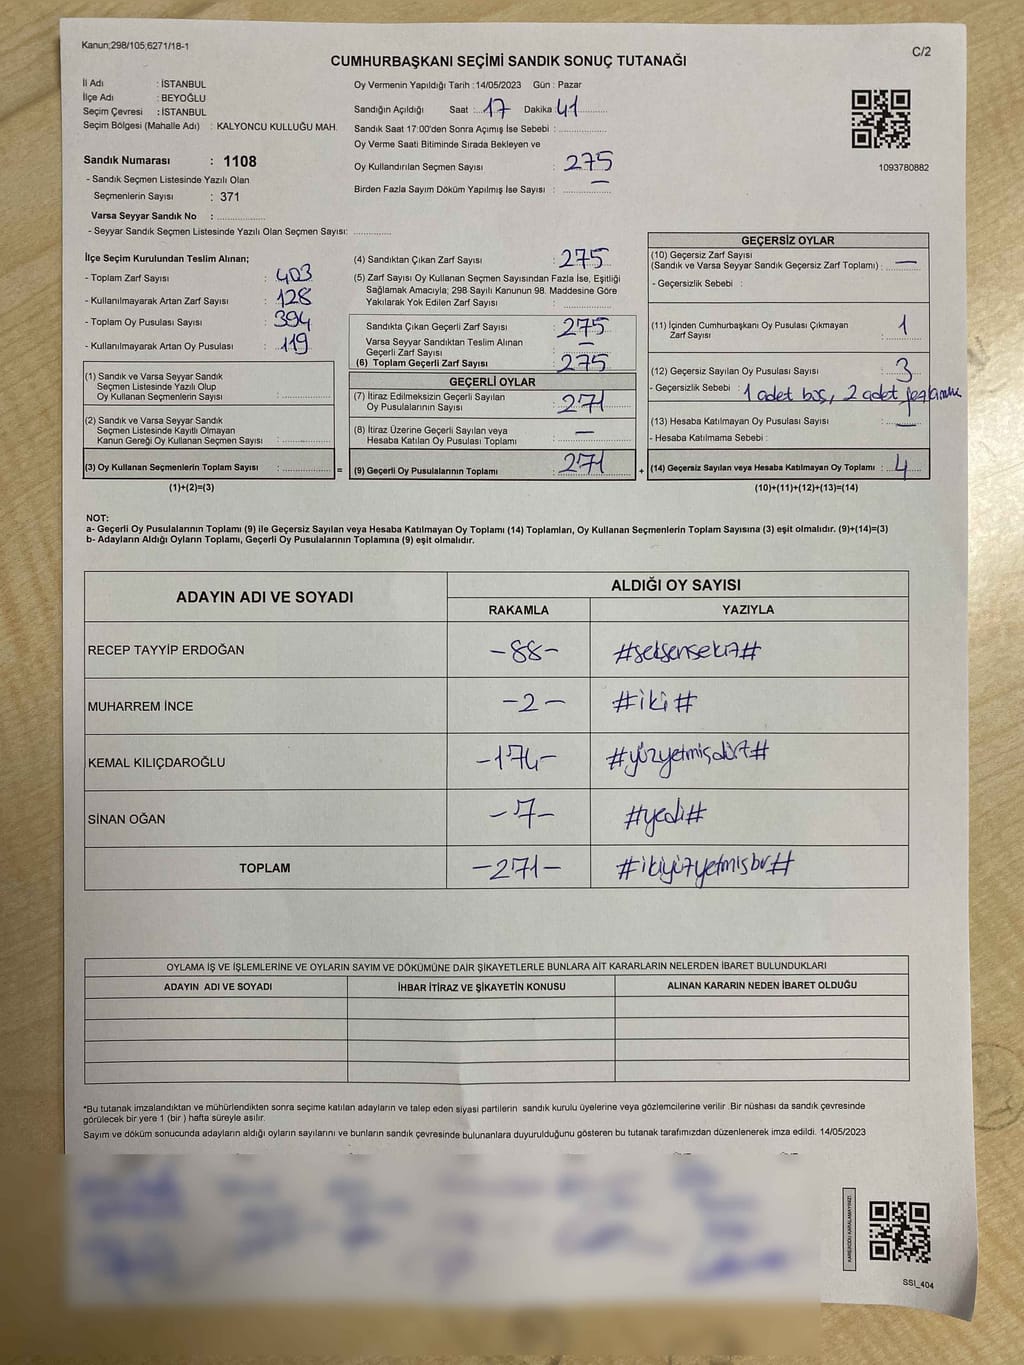 Kanun;298/105;6271/18-1
C/2
CUMHURBAŞKANI SEÇİMİ SANDIK SONUÇ TUTANAĞI
İl Adı : İSTANBUL
İlçe Adı : BEYOĞLU
Seçim Çevresi : İSTANBUL
Seçim Bölgesi (Mahalle Adı) : KALYONCU KULLUĞU MAH.
Sandık Numarası : 1108
- Sandık Seçmen Listesinde Yazılı Olan
Seçmenlerin Sayısı : 371
Varsa Seyyar Sandık No : ................
- Seyyar Sandık Seçmen Listesinde Yazılı Olan Seçmen Sayısı: ............
Oy Vermenin Yapıldığı Tarih : 14/05/2023 Gün : Pazar
Sandığın Açıldığı Saat : 17 Dakika : 41
Sandık Saat 17:00'den Sonra Açımış İse Sebebi : ................
Oy Verme Saati Bitiminde Sırada Bekleyen ve
Oy Kullandırılan Seçmen Sayısı : 275
Birden Fazla Sayım Döküm Yapılmış İse Sayısı : —
1093780882
İlçe Seçim Kurulundan Teslim Alınan;
- Toplam Zarf Sayısı : 403
- Kullanılmayarak Artan Zarf Sayısı : 128
- Toplam Oy Pusulası Sayısı : 394
- Kullanılmayarak Artan Oy Pusulası : 119
(1) Sandık ve Varsa Seyyar Sandık
Seçmen Listesinde Yazılı Olup
Oy Kullanan Seçmenlerin Sayısı : ............
(2) Sandık ve Varsa Seyyar Sandık
Seçmen Listesinde Kayıtlı Olmayan
Kanun Gereği Oy Kullanan Seçmen Sayısı : ............
(3) Oy Kullanan Seçmenlerin Toplam Sayısı : ............
=
(1)+(2)=(3)
(4) Sandıktan Çıkan Zarf Sayısı : 275
(5) Zarf Sayısı Oy Kullanan Seçmen Sayısından Fazla İse, Eşitliği
Sağlamak Amacıyla; 298 Sayılı Kanunun 98. Maddesine Göre
Yakılarak Yok Edilen Zarf Sayısı : ............
Sandıkta Çıkan Geçerli Zarf Sayısı : 275
Varsa Seyyar Sandıktan Teslim Alınan
Geçerli Zarf Sayısı : —
(6) Toplam Geçerli Zarf Sayısı : 275
GEÇERLİ OYLAR
(7) İtiraz Edilmeksizin Geçerli Sayılan
Oy Pusulalarının Sayısı : 271
(8) İtiraz Üzerine Geçerli Sayılan veya
Hesaba Katılan Oy Pusulası Toplamı : —
(9) Geçerli Oy Pusulalarının Toplamı : 271
+
GEÇERSİZ OYLAR
(10) Geçersiz Zarf Sayısı
(Sandık ve Varsa Seyyar Sandık Geçersiz Zarf Toplamı) : —
- Geçersizlik Sebebi :
(11) İçinden Cumhurbaşkanı Oy Pusulası Çıkmayan
Zarf Sayısı : 1
(12) Geçersiz Sayılan Oy Pusulası Sayısı : 3
- Geçersizlik Sebebi : 1 adet boş, 2 adet
(13) Hesaba Katılmayan Oy Pusulası Sayısı : —
- Hesaba Katılmama Sebebi :
(14) Geçersiz Sayılan veya Hesaba Katılmayan Oy Toplamı : 4
(10)+(11)+(12)+(13)=(14)
NOT:
a- Geçerli Oy Pusulalarının Toplamı (9) ile Geçersiz Sayılan veya Hesaba Katılmayan Oy Toplamı (14) Toplamları, Oy Kullanan Seçmenlerin Toplam Sayısına (3) eşit olmalıdır. (9)+(14)=(3)
b- Adayların Aldığı Oyların Toplamı, Geçerli Oy Pusulalarının Toplamına (9) eşit olmalıdır.
ADAYIN ADI VE SOYADI
ALDIĞI OY SAYISI
RAKAMLA YAZIYLA
RECEP TAYYİP ERDOĞAN -88- #seksensekiz#
MUHARREM İNCE -2- #iki#
KEMAL KILIÇDAROĞLU -174- #yüzyetmişdört#
SİNAN OĞAN -7- #yedi#
TOPLAM -271- #ikiyüzyetmişbir#
OYLAMA İŞ VE İŞLEMLERİNE VE OYLARIN SAYIM VE DÖKÜMÜNE DAİR ŞİKAYETLERLE BUNLARA AİT KARARLARIN NELERDEN İBARET BULUNDUKLARI
ADAYIN ADI VE SOYADI İHBAR İTİRAZ VE ŞİKAYETİN KONUSU ALINAN KARARIN NEDEN İBARET OLDUĞU
*Bu tutanak imzalandıktan ve mühürlendikten sonra seçime katılan adayların ve talep eden siyasi partilerin sandık kurulu üyelerine veya gözlemcilerine verilir. Bir nüshası da sandık çevresinde
görülecek bir yere 1 (bir ) hafta süreyle asılır.
Sayım ve döküm sonucunda adayların aldığı oyların sayılarını ve bunların sandık çevresinde bulunanlara duyurulduğunu gösteren bu tutanak tarafımızdan düzenlenerek imza edildi. 14/05/2023
KAREKODU KARALAMAYINIZ!
SSI_404